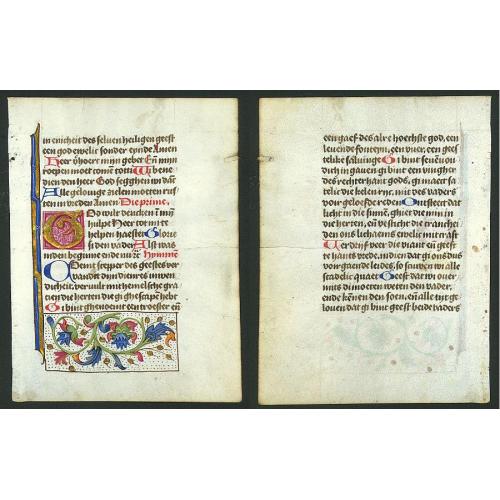 in enicheit des seluen heiligen geest
een god ewelic sonder eynde Amen
Heer v̄hoert mijn gebet Eñ mijn
roepen moet come̅ tot ti Wi bene
dien den heer God segghen wi dāc
Alle gelouige zielen moeten rust
ten in vreden Amen Die prime,
God wilt dencken ī mijn
hulpe Heer tot mi te
helpen haeste Glorie
si den vader Als was
inden beginne ende nu Hymmē
Coemt scepper des geestes ver
wandt dijn dienres inwen
dicheit, veruult mit hemelsche gra
cien die herten die gi ghescapē hebt
Gi bint ghenoemt een trooster eñ
een gaef des alre hoechste god, een
leuende fonteyn, een vuer, een gees
telike saluinge Gi bint seuēuou
dich in gauen gi bint een vinghe
des rechterhant gods, gi maect sa
telic die kelen rijc. mit des vaders
voer geloefde reden Ontsteect dat
licht in die sinnē, ghiet die min in
die herten, eñ vesticht die crancheit
den ons lichaems ewelic mit craft
Werdrijft veer die viant eñ geeft
te hants vrede,
voergaende leides, so scuwen wi alle
scadelic quaet Geeft dat wi ouer
mits di moeten weten den vader,
ende kēnen den soen, eñ alle tijt ge
louen dat gi bint geest beide vaders